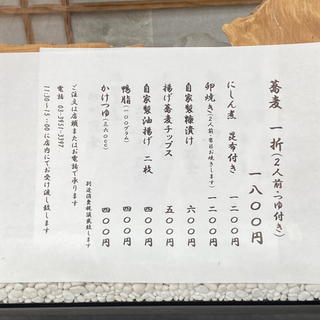 蕎麦 一折(2人前・つゆ付き)
一八〇〇円
にしん煮 昆布付き 一二〇〇円
卵焼き(2人前・当日お焼きします) 一二〇〇円
自家製糠漬け 六〇〇円
揚げ蕎麦チップス 五〇〇円
自家製油揚げ 二枚 四〇〇円
鴨脂(一〇〇グラム) 四〇〇円
かけつゆ(三六〇cc) 四〇〇円
別途消費税頂戴致します
ご注文は店頭またはお電話で承ります
電話 03-3951-3397
11:30~15:00に店内にてお受け渡し致します